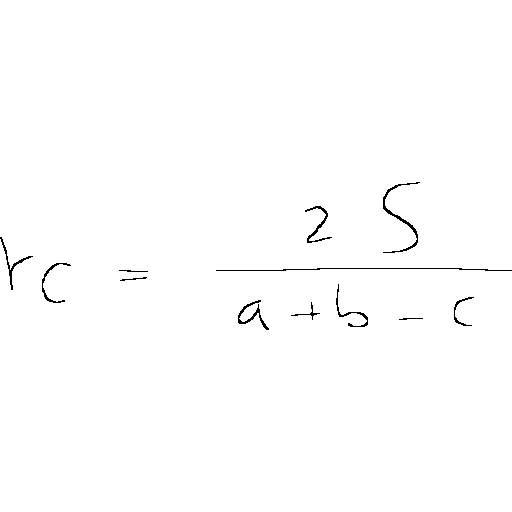 r_c = \frac{2 S}{a + b - c}